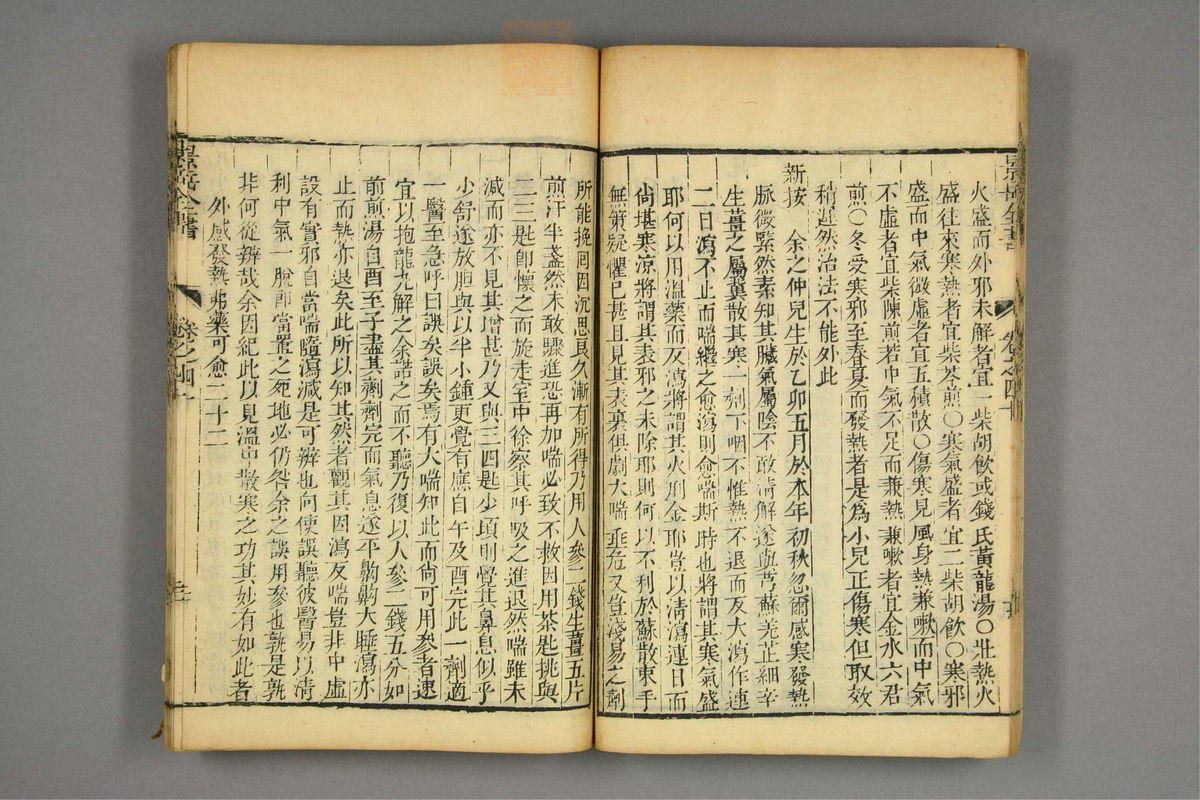 景岳全書
卷之四十
火盛而外邪未解者宜一柴胡飲或錢氏黃龍湯○壯熱火
盛往來寒熱者宜柴芩煎○寒氣盛者宜二柴胡飲○寒邪
盛而中氣微虛者宜五積散○傷寒見風身熱兼嗽而中氣
不虛者宜柴陳煎若中氣不足而兼熱兼嗽者宜金水六君
煎○冬受寒邪至春夏而發熱者是爲小兒正傷寒但取效
稍遲然治法不能外此
新按 余之仲兒生於乙卯五月於本年初秋忽爾感寒發熱
脉微緊然素知其臟氣屬陰不敢清解遂與芎蘇羌芷細辛
生薑之屬冀散其寒一劑下咽不惟熱不退而反大瀉作連
二日瀉不止而喘繼之愈瀉則愈喘斯時也將謂其寒氣盛
耶何以用溫藥而反瀉將謂其火刑金耶豈以清瀉連日而
尚堪寒涼將謂其表邪之未除耶則何以不利於蘇散束手
無策疑懼已甚且見其表裏俱劇大喘垂危又豈淺易之劑
所能挽回因沉思良久漸有所得乃用人參二錢生薑五片
煎汁半盞然未敢驟進恐再加喘必致不救因用茶匙挑與
二三匙卽懷之而旋走室中徐察其呼吸之進退然喘雖未
減而亦不見其增甚乃又與三四匙少頃則覺其鼻息似乎
少舒遂放胆與以半小鍾更覺有應自午及酉完此一劑適
一醫至急呼曰誤矣誤矣焉有大喘如此而尚可用參者速
宜以抱龍丸解之余諾之而不聽乃復以人參二錢五分如
前煎湯自酉至子盡其劑劑完而氣息遂平齁齁大睡瀉亦
止而熱亦退矣此所以知其然者觀其因瀉反喘豈非中虛
設有實邪自當喘隨瀉減是可辨也向使誤聽彼醫易以清
利中氣一脫卽當置之死地必仍咎余之誤用參也孰是孰
非何從辨哉余因紀此以見溫中散寒之功其妙有如此者
外感發熱弗藥可愈二十二
景岳全書
卷之四十